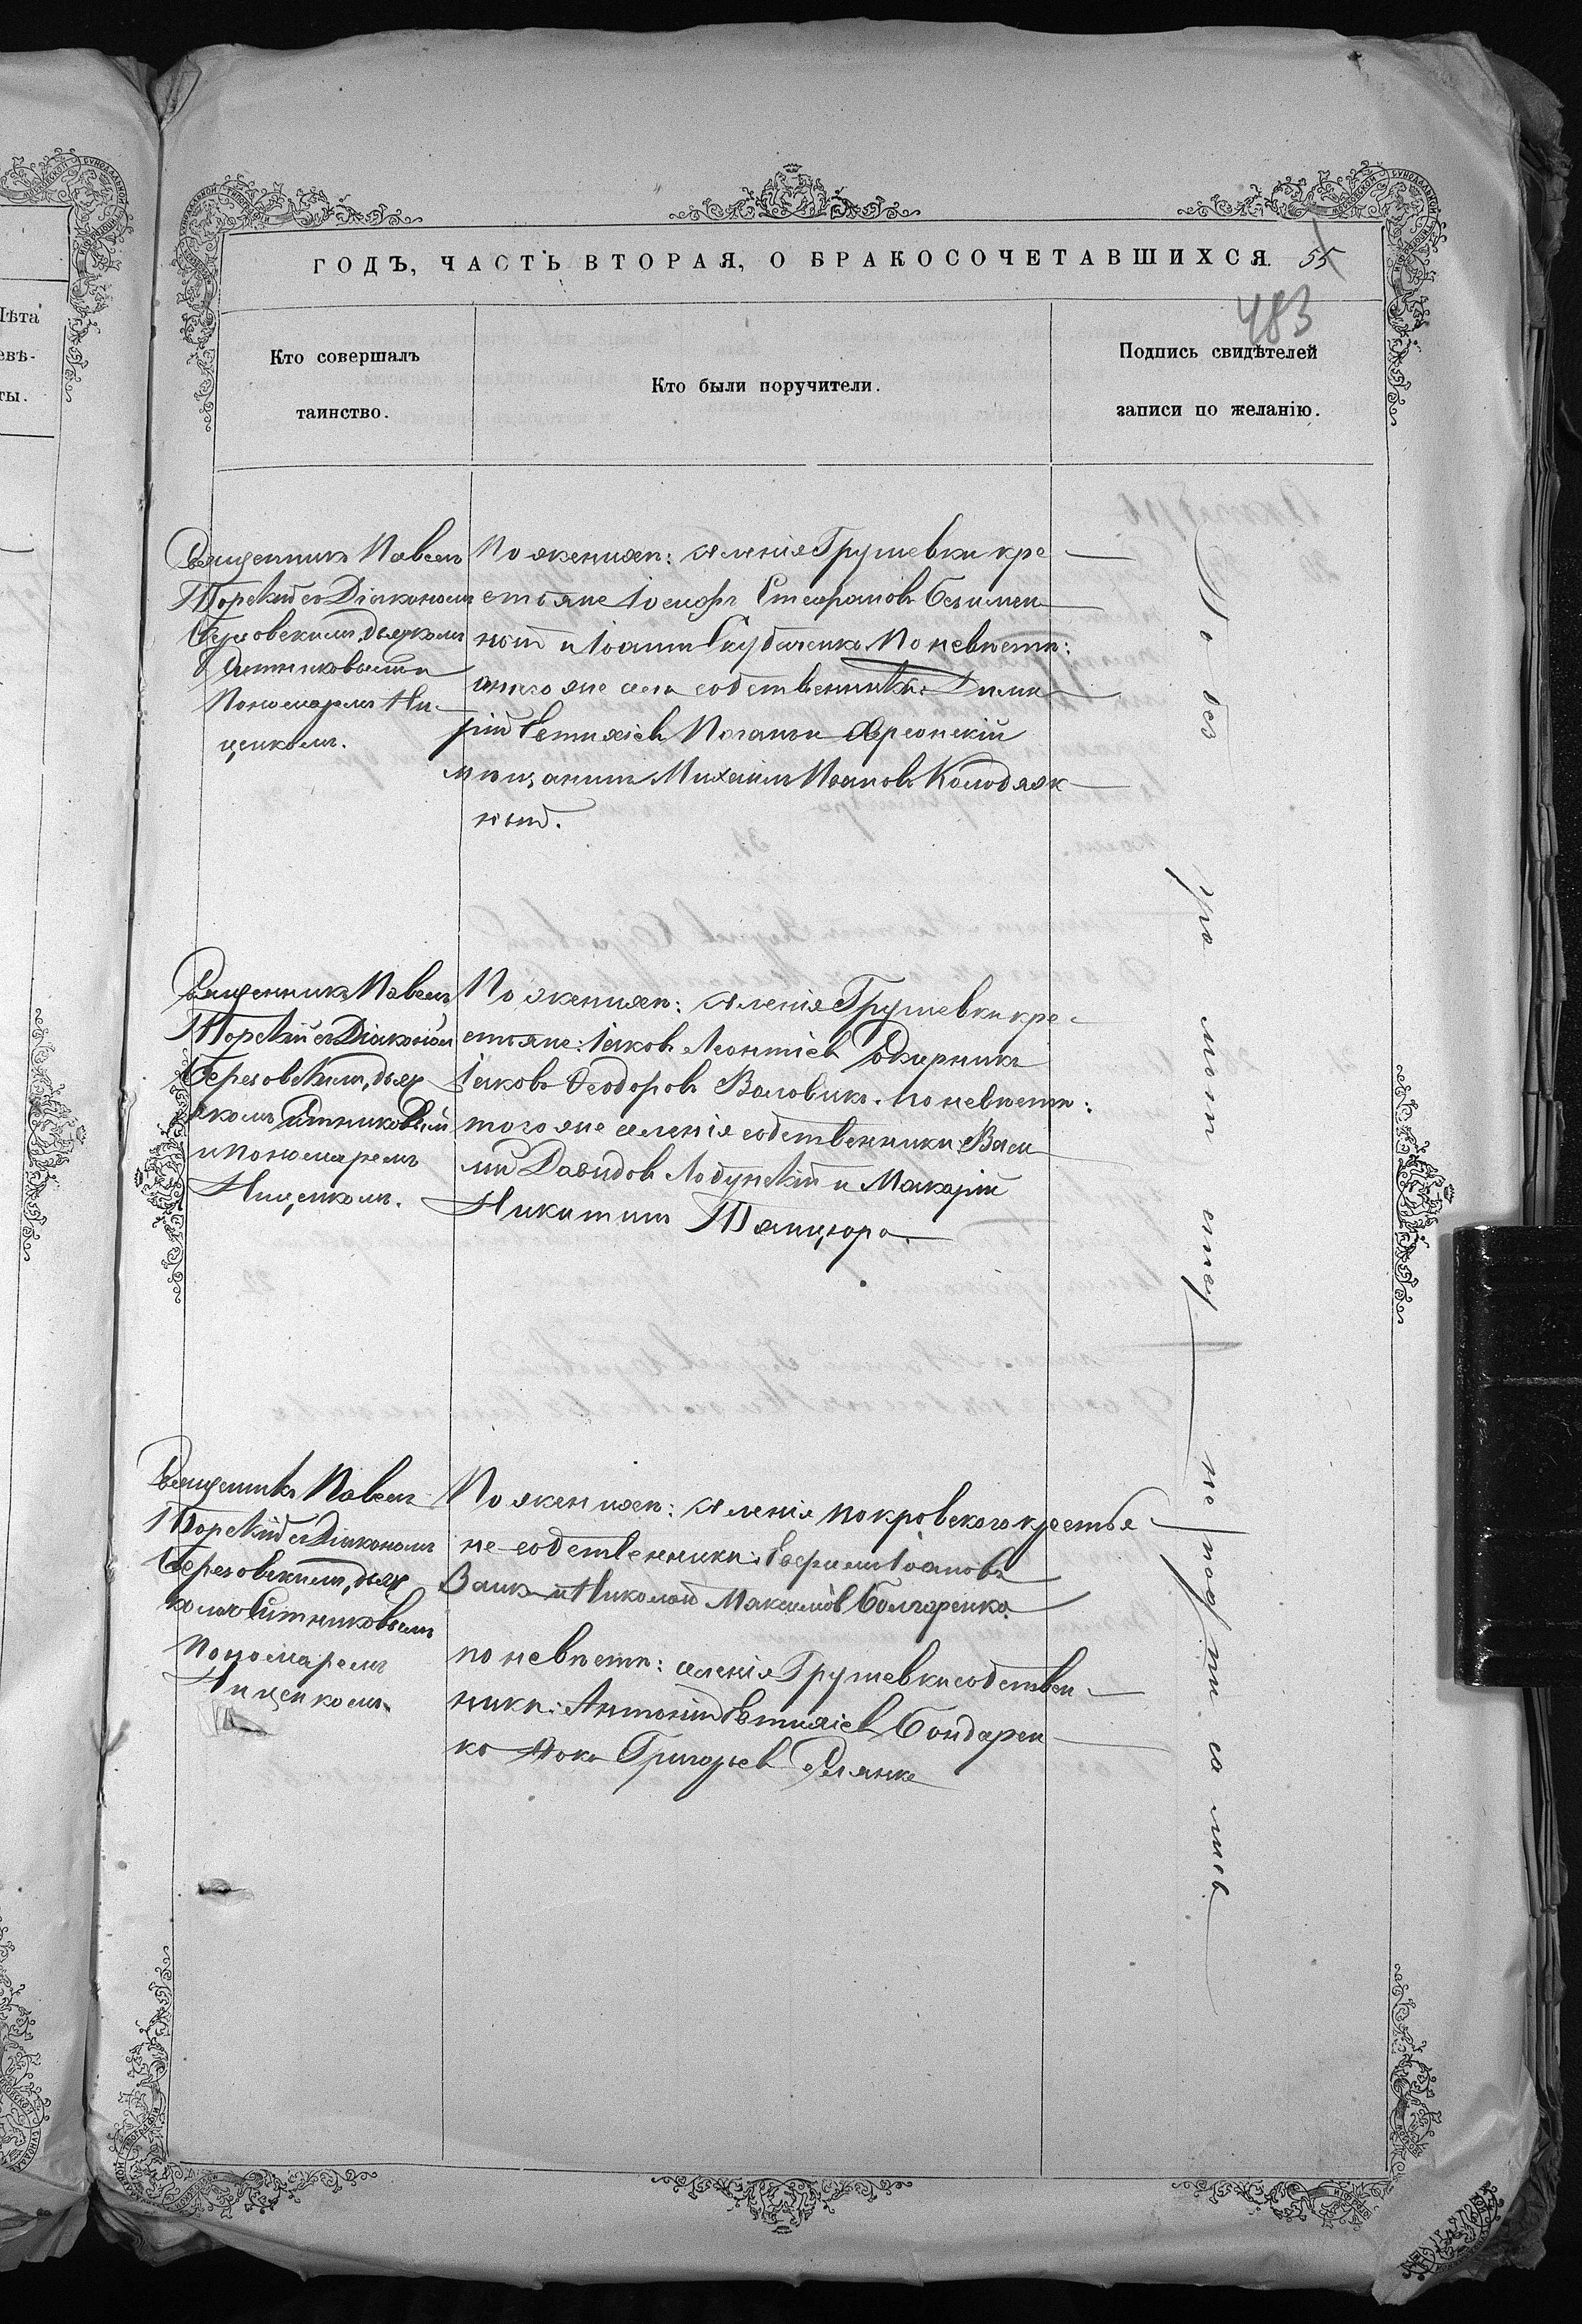 ГОДЪ, ЧАСТЬ ВТОРАЯ, О БРАКОСОЧЕТАВШИХСЯ. 55
483
Кто совершалъ
таинство.
Кто были поручители.
Подпись свидѣтелей
записи по желанію.
Священникъ Павелъ
Торскій съ Діакономъ
Березовскимъ, дьячкомъ
Ситниковымъ и
Пономаремъ Ни-
ценкомъ.
По жених: селенія Грушевки кре-
стьяне Іосифъ Стефановъ Безимен-
ный и Іоаннъ Скубаченко По невѣстѣ:
того же села собственники: Дими-
трій Евтихіевъ Поганы Херсонскій
мѣщанинъ Михаилъ Ивановъ Колодяж-
ный.
Священникъ Павелъ
Торскій съ Діакономъ
Березовскимъ, дьяч
комъ Ситниковымъ
и пономаремъ
Ниценкомъ.
По жених: селенія Грушевки кре-
стьяне: Іаковъ Леонтіевъ
Іаковъ Ѳеодоровъ Воловикъ. по невѣстѣ:
того же селенія собственники Васи
лій Давидовъ Лобунскій и Макарій
Никитинъ Тянцюра.
Священникъ Павелъ
Торскій съ Діакономъ
Березовскимъ, дьяч
комъ Ситниковымъ
Пономаремъ
Ниценкомъ.
По жених: селенія Покровского крестья-
не-собственники: Іоановъ
Заика и Николай Максимовъ Болгаренко.
по невѣстѣ: селенія Грушевки собствен-
ники: Антоній Евтихіевъ Бондарен-
ко Григорьевъ